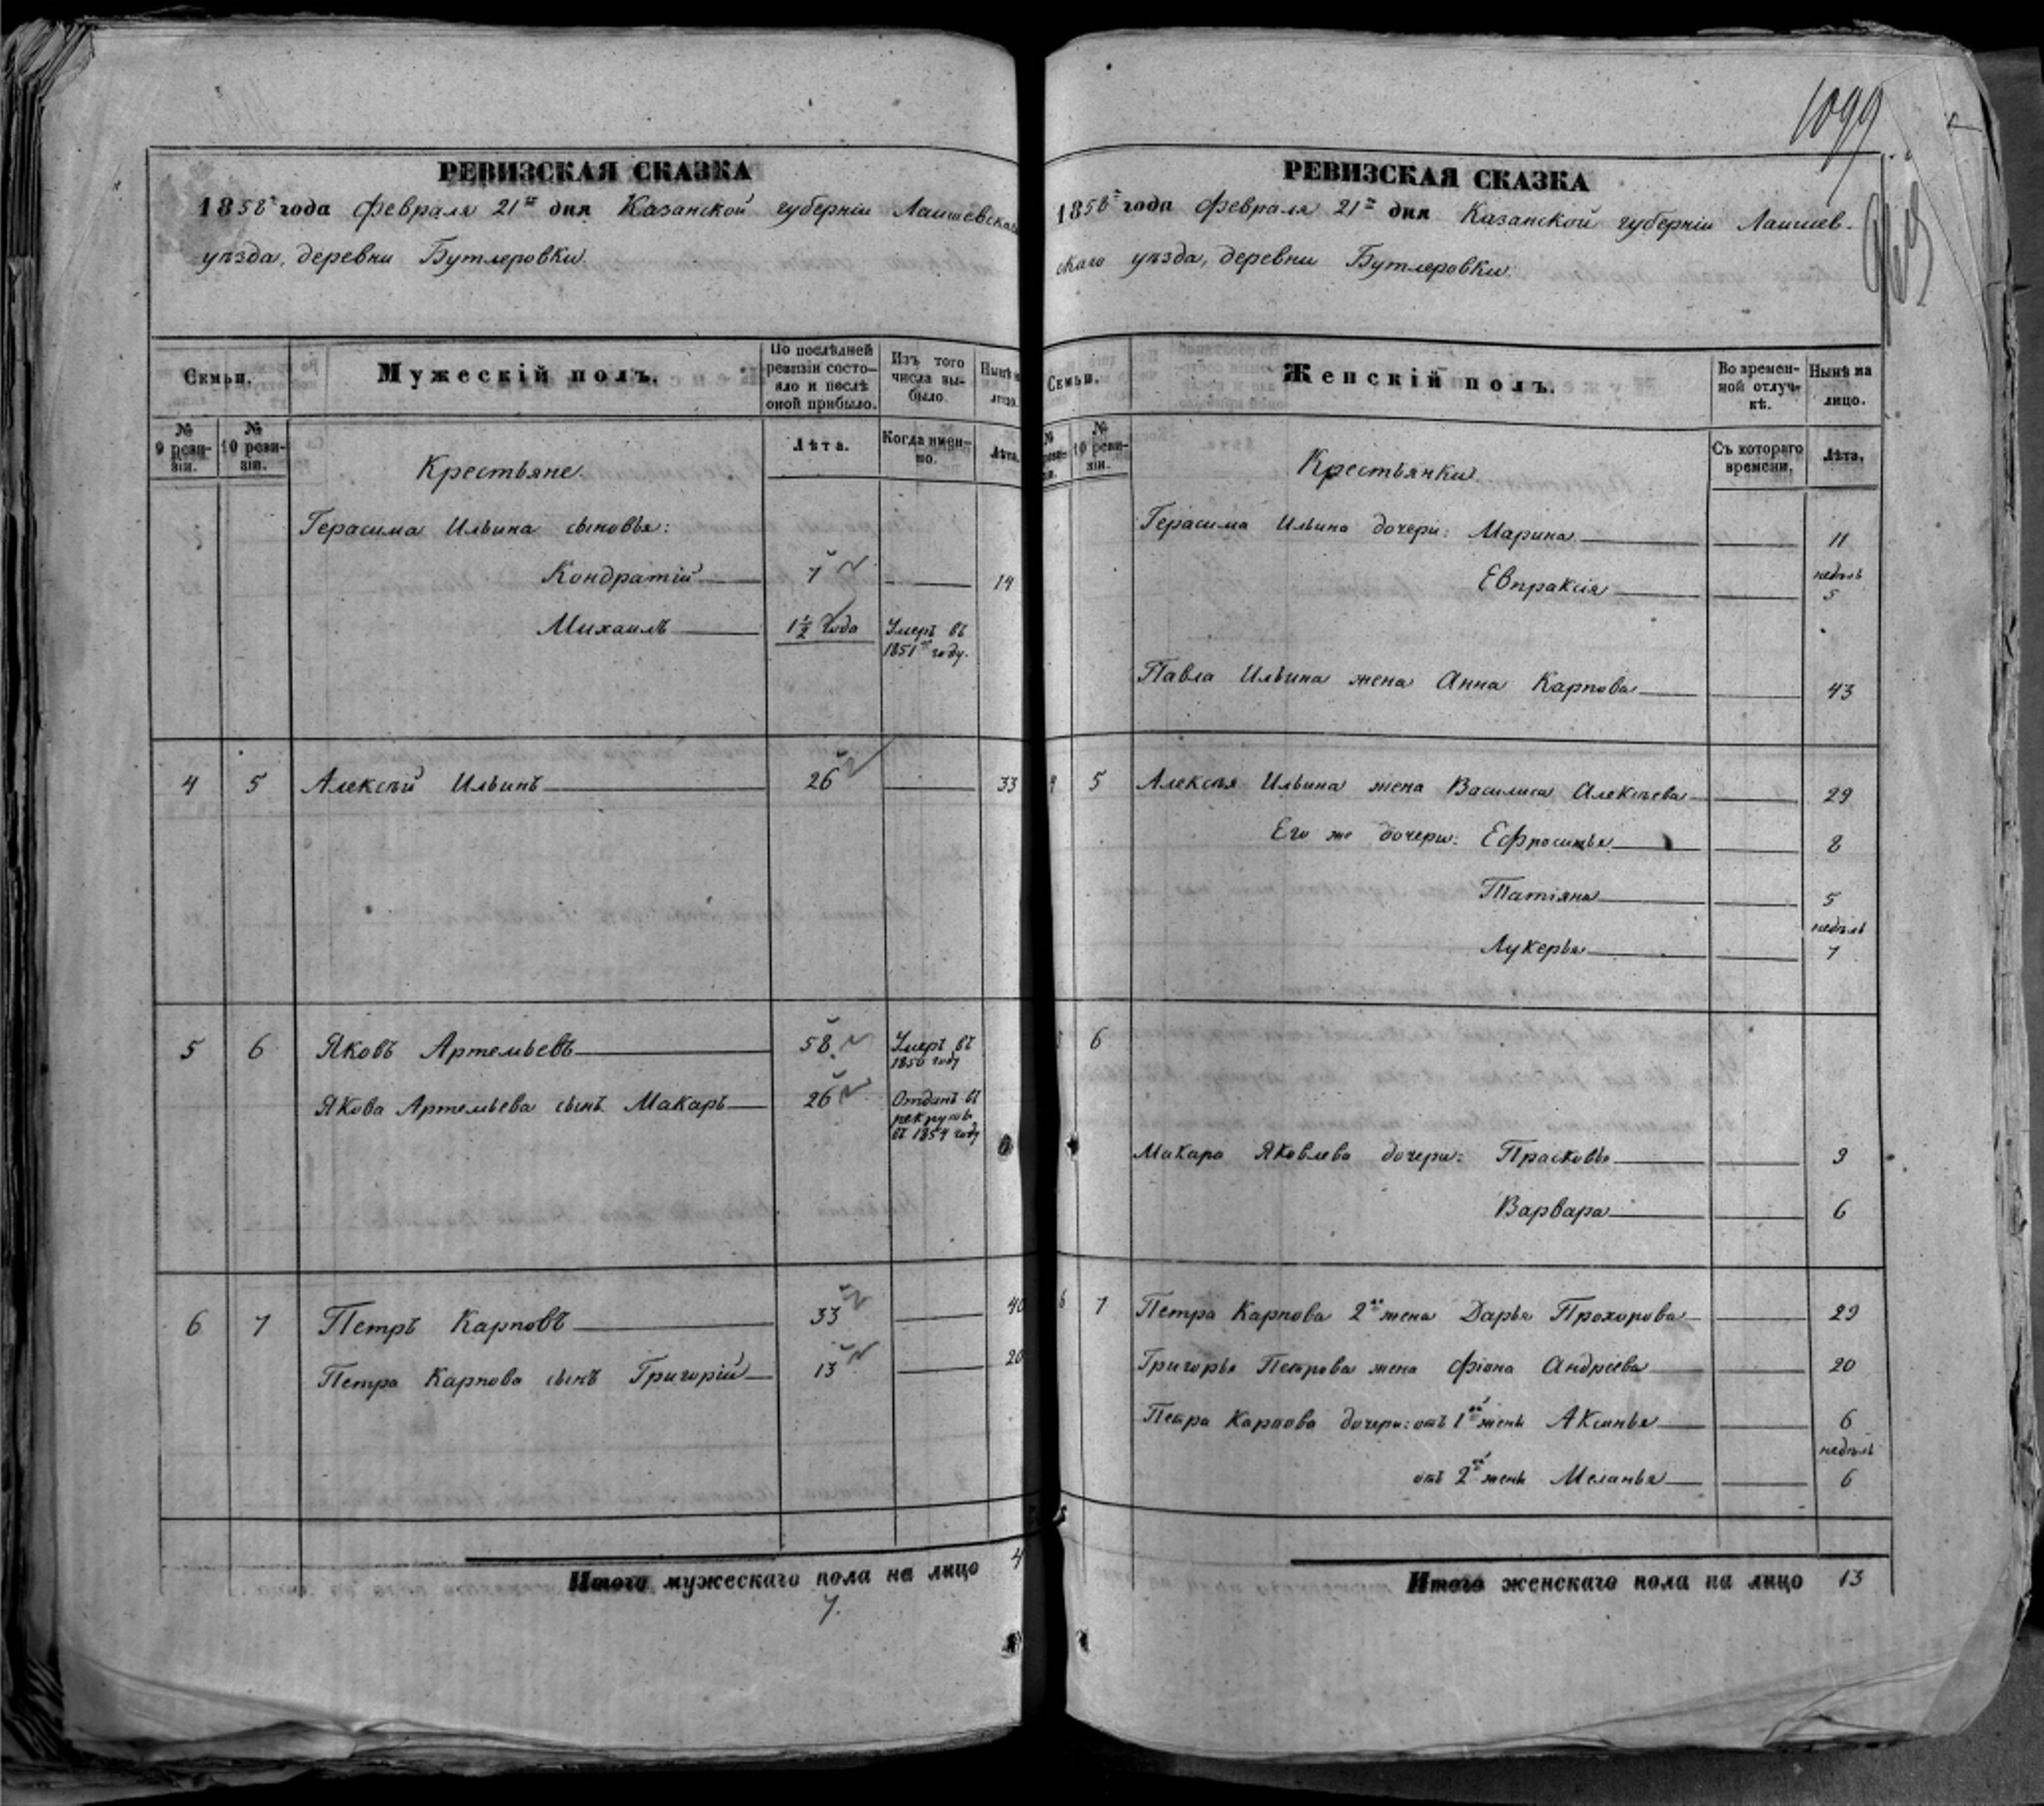 1099
РЕВИЗСКАЯ СКАЗКА
1858 года Февраля 21 дня Казанской губерніи Лаишевскаго
уѣзда, деревни Бутлеровки.
Семьи.
Мужескій полъ.
По послѣдней ревизіи состояло и послѣ оной прибыло.
Изъ того числа выбыло.
Нынѣ на лицо.
№ 9 ревизіи.
№ 10 ревизіи.
Лѣта.
Когда именно.
Лѣта.
Крестьяне
Герасима Ильина сыновья:
Кондратій 7 14
Михаилъ 1½ года Умеръ въ 1851 году.
4 5 Алексѣй Ильинъ 26 33
5 6 Яковъ Артемьевъ 58 Умеръ въ 1850 году
Якова Артемьева сынъ Макаръ 26 Отданъ въ рекруты въ 1854 году
6 7 Петръ Карповъ 33 40
Петра Карпова сынъ Григорій 13 20
Итого мужескаго пола на лицо 4
7.
РЕВИЗСКАЯ СКАЗКА
1858 года Февраля 21 дня Казанской губерніи Лаишев-
скаго уѣзда, деревни Бутлеровки.
Семьи.
Женскій полъ.
Во временной отлучкѣ.
Нынѣ на лицо.
№ 10 ревизіи.
Съ котораго времени.
Лѣта.
Крестьянки
Герасима Ильина дочери: Марина 11
Евпраксія недѣль 5
Павла Ильина жена Анна Карпова 43
5 Алексѣя Ильина жена Василиса Алексѣева 29
Его же дочери: Ефросинья 8
Татіяна 5
Лукерья недѣль 7
6
Макара Яковлева дочери: Прасковья 9
Варвара 6
6 7 Петра Карпова 2я жена Дарья Прохорова 29
Григорья Петрова жена Фіона Андріева 20
Петра Карпова дочери: отъ 1й жены Аксинья 6
отъ 2й жены Меланья недѣль 6
Итого женскаго пола на лицо 13